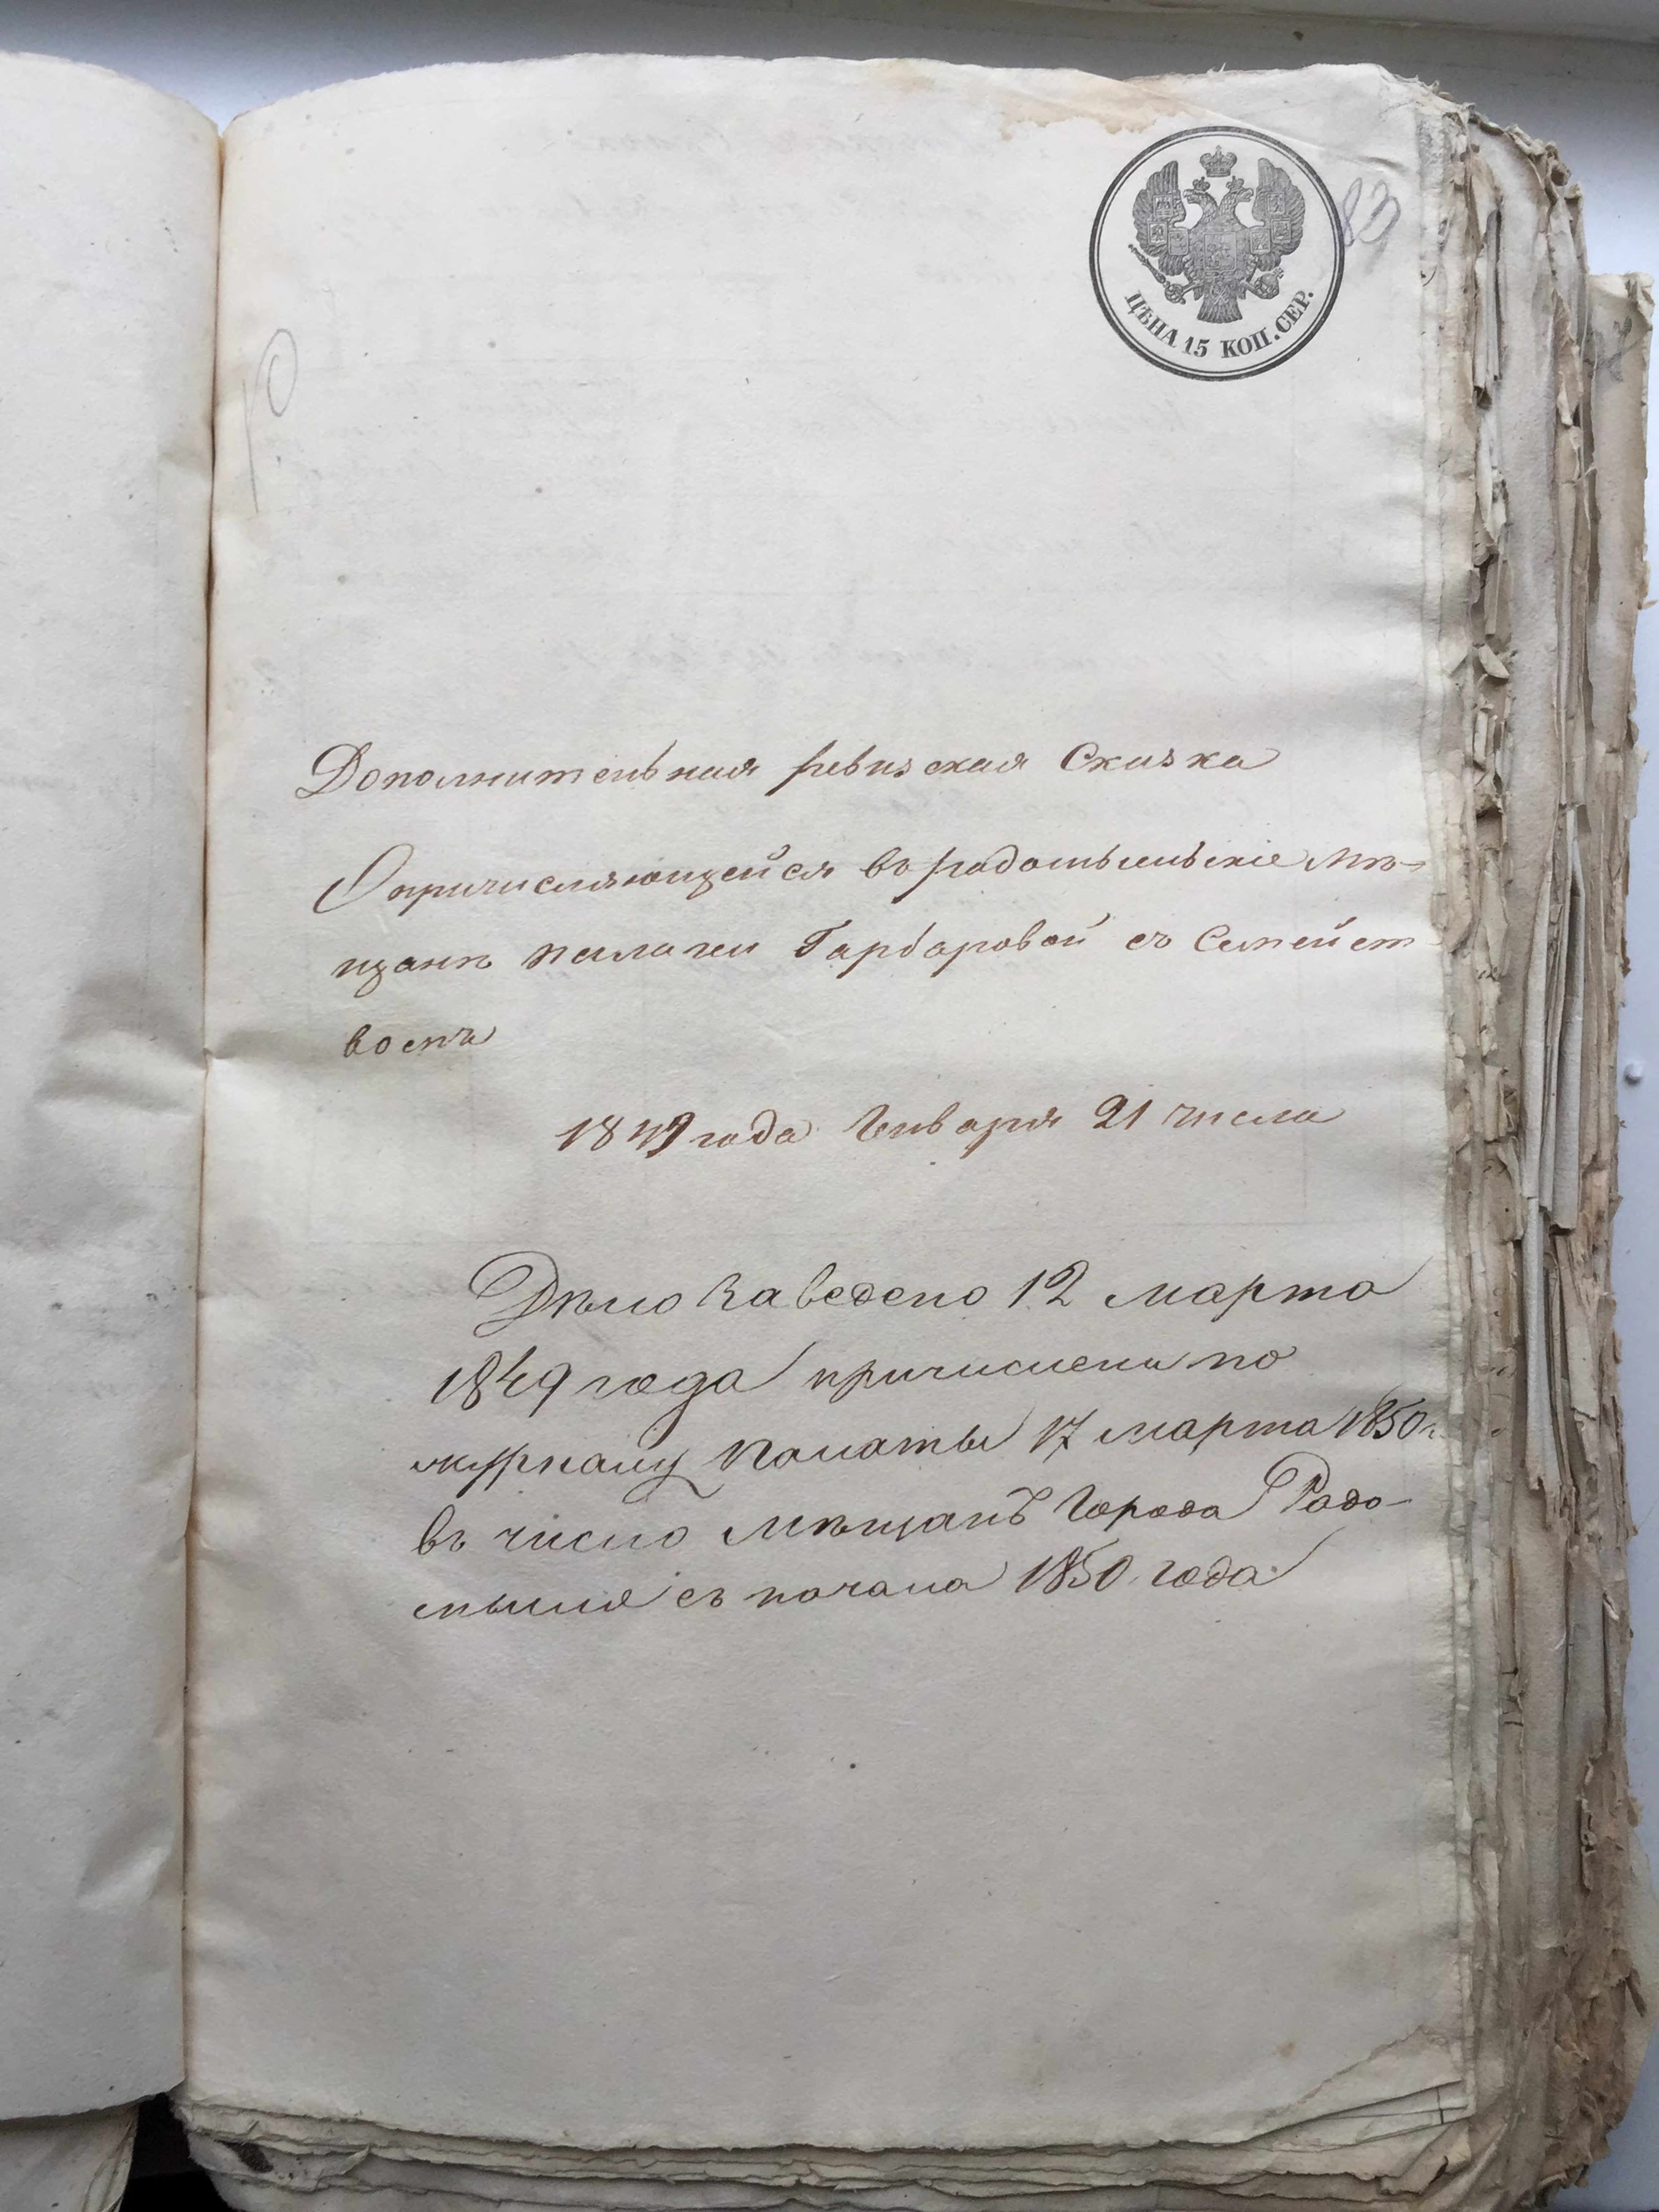 83
ЦѢНА 15 КОП. СЕР.
Дополнительная ревизская Сказка
О причисляющейся въ радомысльскіе Мѣ-
щане Гарбаровой съ Семейст
вомъ
1849 года Генваря 21 числа
Дѣло заведено 12 марта
1849 года причислены по
журналу Палаты 17 марта 1850 г
въ число Мѣщанъ Города Радо-
мысля съ начала 1850 года